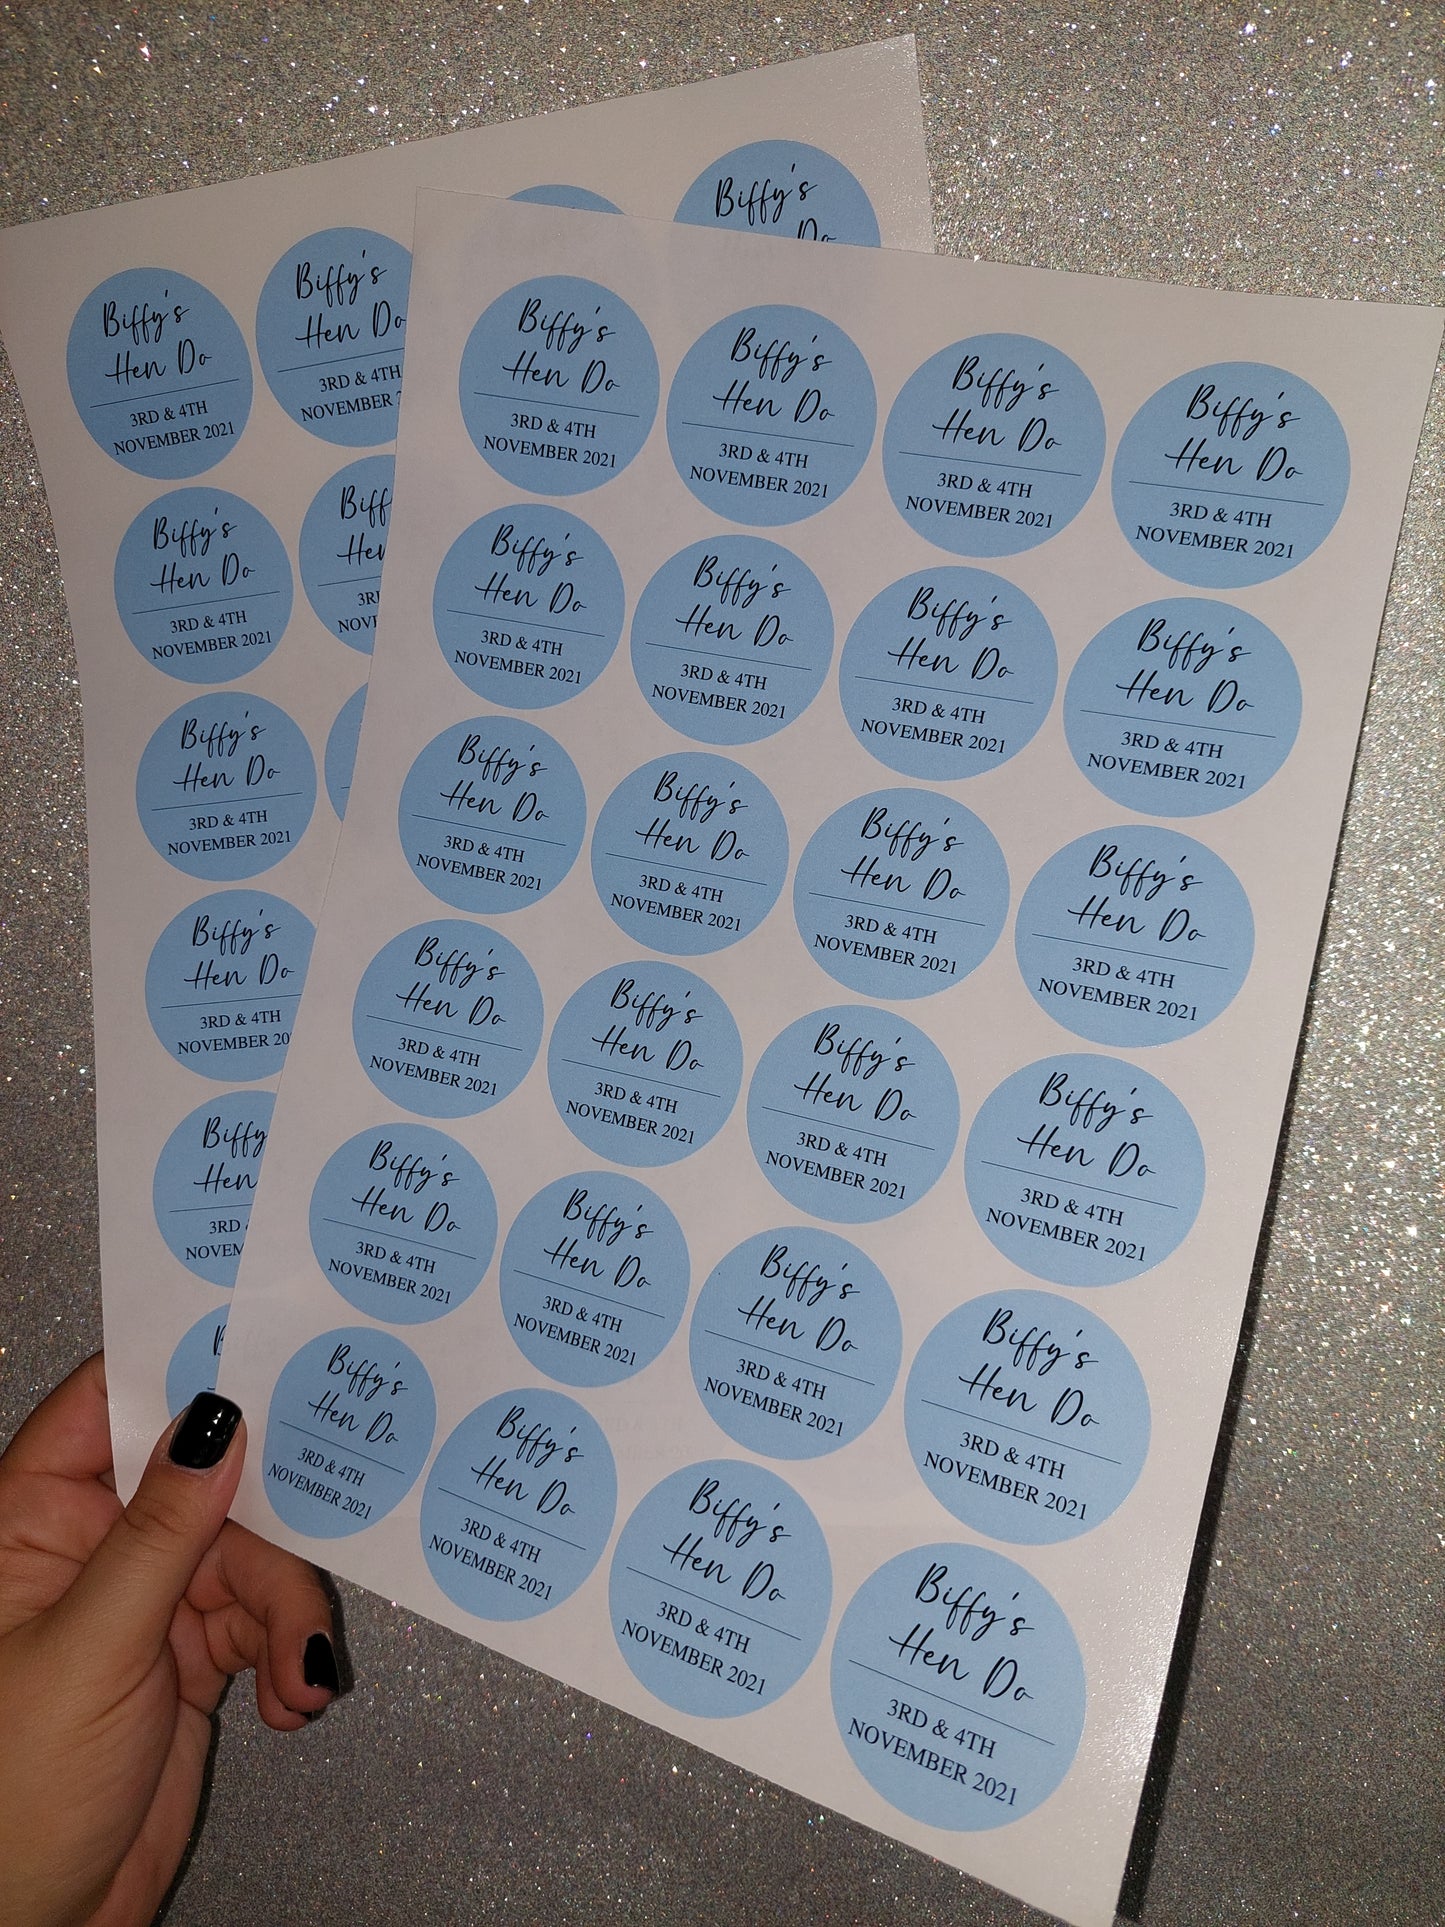 Biffy's
Do
Biffy's
Hen Do
3RD & 4TH
NOVEMBER 2021
Biffy's
Hen Do
3RD & 4TH
NOVEMBER
Biffy's
Hen Do
3RD & 4TH
NOVEMBER 2021
Biffy's
Hen Do
3RD & 4TH
NOVEMBER 2021
Biffy's
Hen Do
3RD & 4TH
NOVEMBER 20
Biffy
Hen
3RD
NOVEM
Biffy's
Hen Do
3RD & 4TH
NOVEMBER 2021
Biffy's
Hen Do
3RD & 4TH
NOVEMBER 2021
Biffy's
Hen Do
3RD & 4TH
NOVEMBER 2021
Biffy's
Hen Do
3RD & 4TH
NOVEMBER 2021
Biffy's
Hen Do
3RD & 4TH
NOVEMBER 2021
Biffy's
Hen Do
3RD & 4TH
NOVEMBER 2021
Biffy's
Hen Do
3RD & 4TH
NOVEMBER 2021
Biffy's
Hen Do
3RD & 4TH
NOVEMBER 2021
Biffy's
Hen Do
3RD & 4TH
NOVEMBER 2021
Biffy's
Hen Do
3RD & 4TH
NOVEMBER 2021
Biffy's
Hen Do
3RD & 4TH
NOVEMBER 2021
Biffy's
Hen Do
3RD & 4TH
NOVEMBER 2021
Biffy's
Hen Do
3RD & 4TH
NOVEMBER 2021
Biffy's
Hen Do
3RD & 4TH
NOVEMBER 2021
Biffy's
Hen Do
3RD & 4TH
NOVEMBER 2021
Biffy's
Hen Do
3RD & 4TH
NOVEMBER 2021
Biffy's
Hen Do
3RD & 4TH
NOVEMBER 2021
Biffy's
Hen Do
3RD & 4TH
NOVEMBER 2021
Biffy's
Hen Do
3RD & 4TH
NOVEMBER 2021
Biffy's
Hen Do
3RD & 4TH
NOVEMBER 2021
Biffy's
Hen Do
3RD & 4TH
NOVEMBER 2021
Biffy's
Hen Do
3RD & 4TH
NOVEMBER 2021
Biffy's
Hen Do
3RD & 4TH
NOVEMBER 2021
Biffy's
Hen Do
3RD & 4TH
NOVEMBER 2021